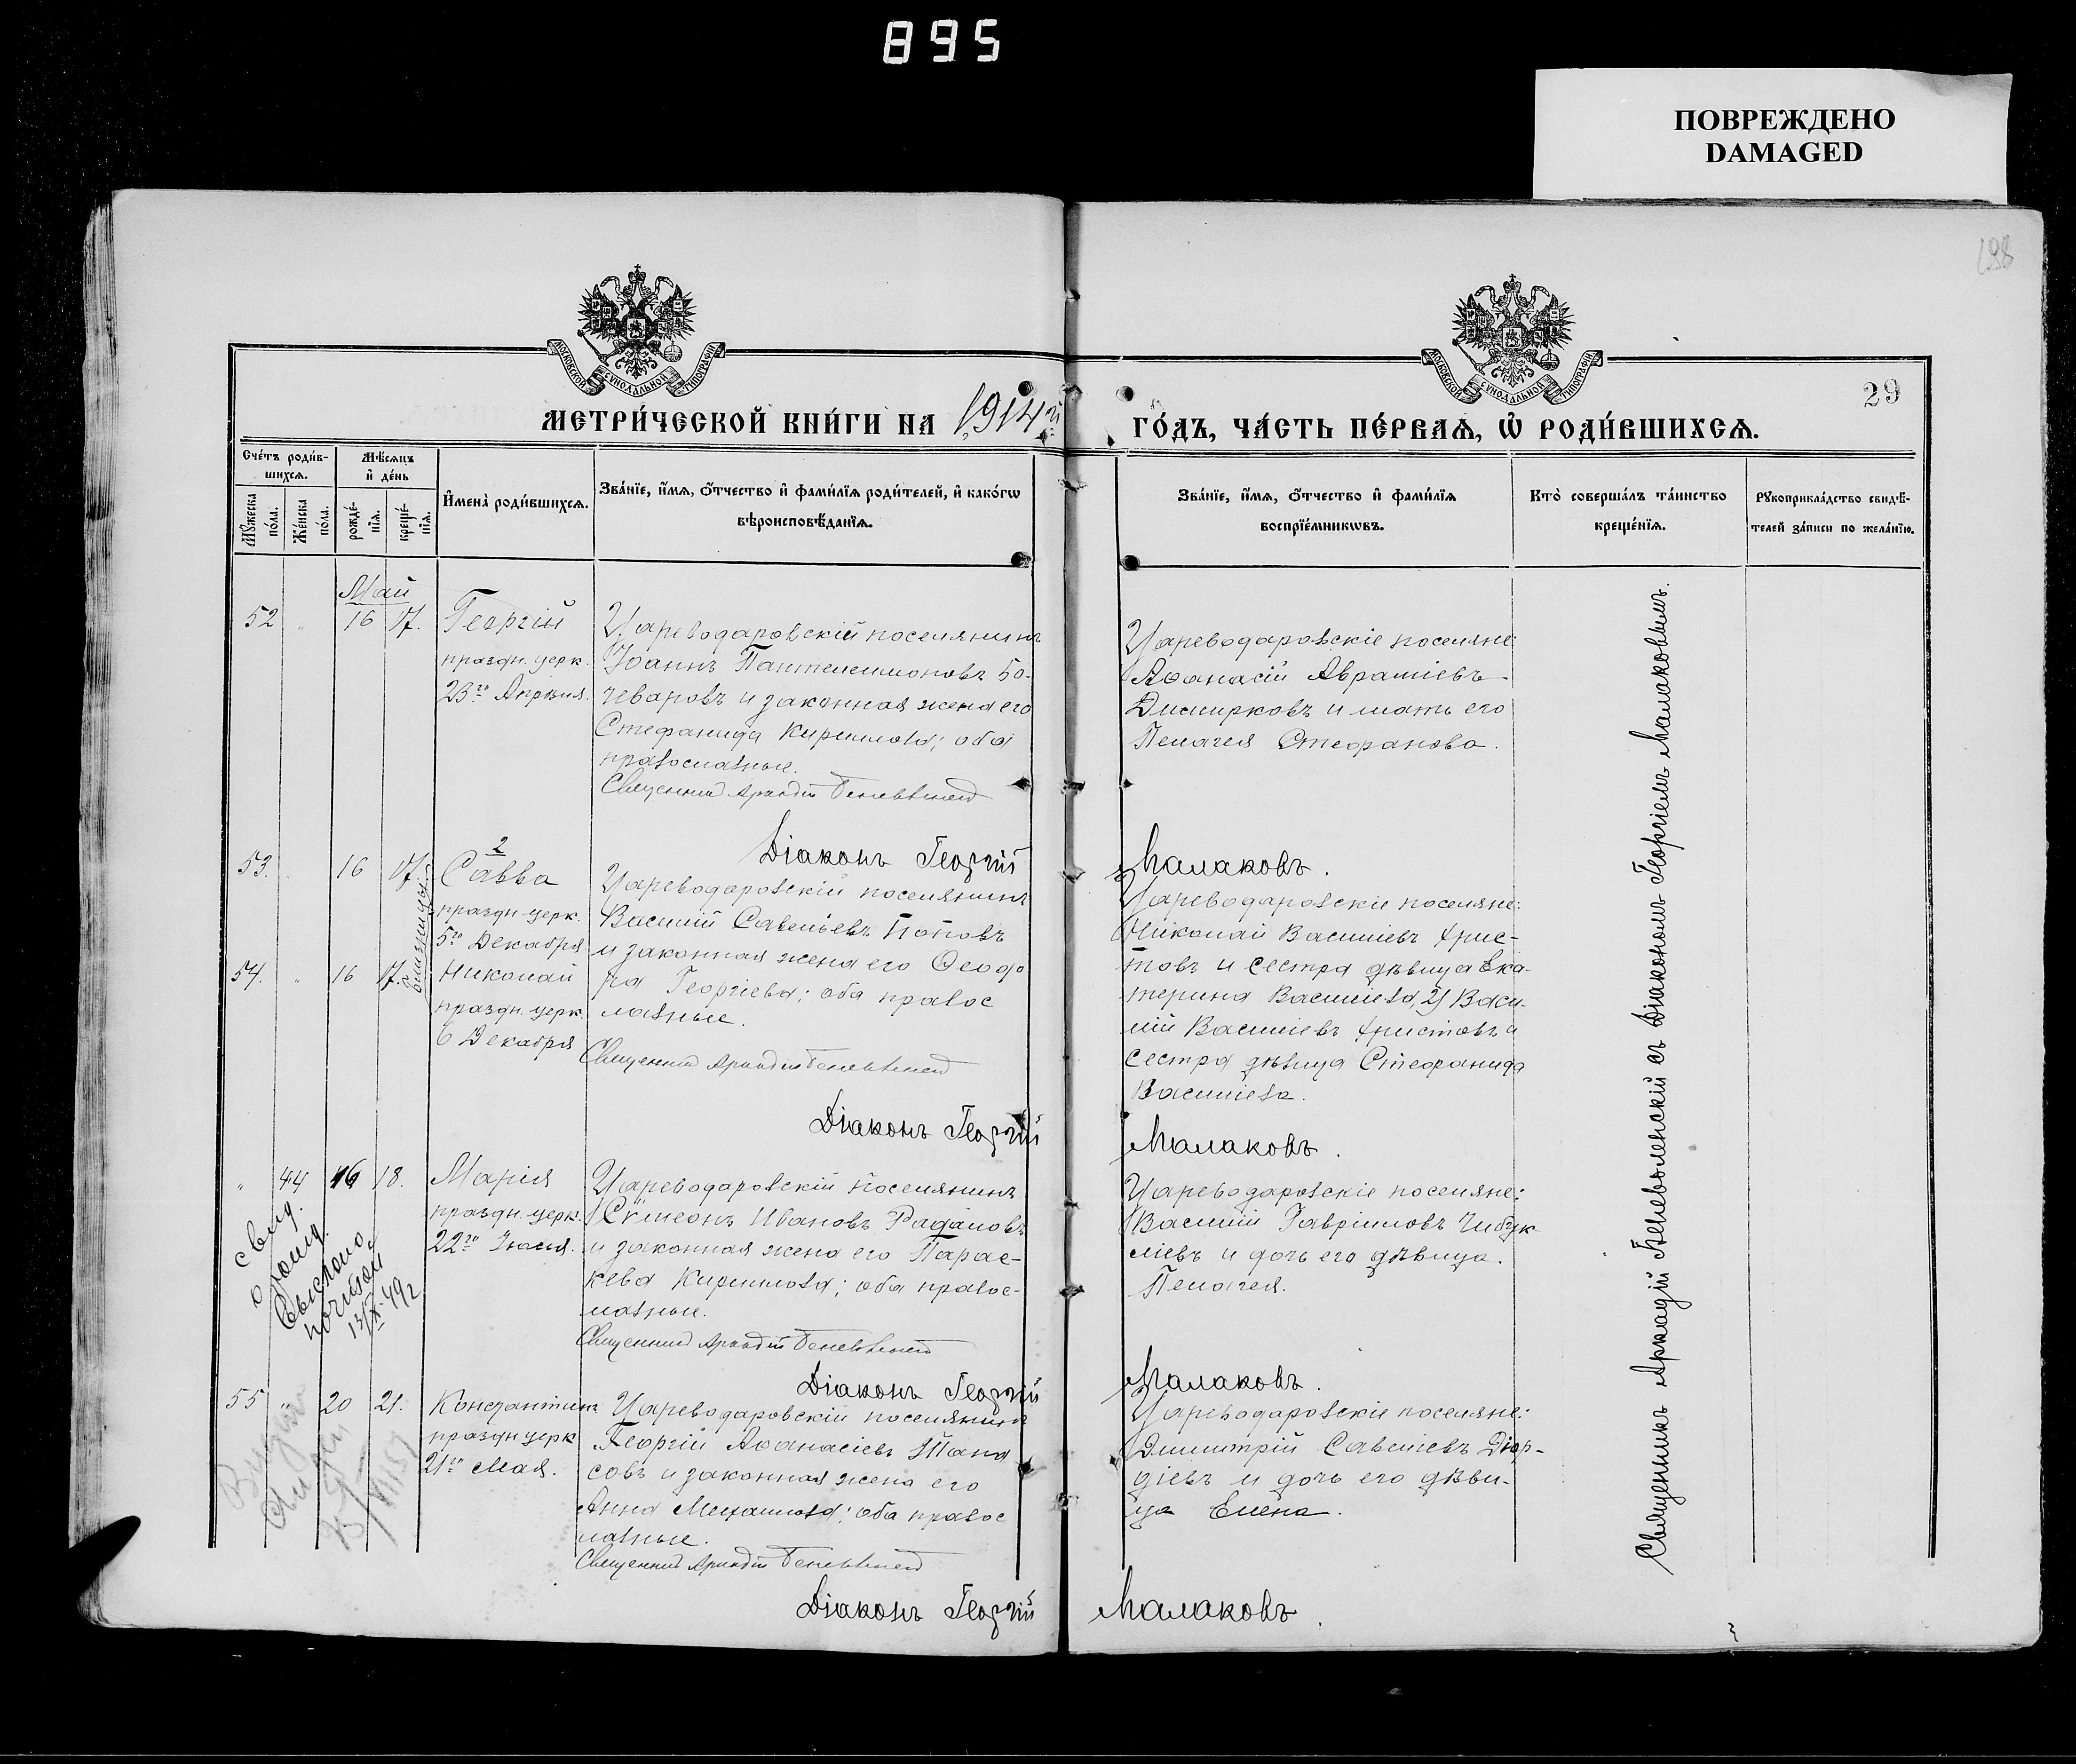 895
ПОВРЕЖДЕНО
DAMAGED
198
29
МОСКОВСКОЙ СѴНОДАЛЬНОЙ ТИПОГРАФІИ
МОСКОВСКОЙ СѴНОДАЛЬНОЙ ТИПОГРАФІИ
МЕТРИ́ЧЕСКОЙ КНИ́ГИ НА 1914й
ГО́ДЪ, ЧА́СТЬ ПЕ́РВАѦ, Ѡ҆ РОДИ́ВШИХСѦ.
Сче́тъ роди́в-
шихсѧ.
Мꙋ́жеска
по́ла.
Же́нска
по́ла.
Мѣ́сѧцъ
и҆ де́нь
рожде́-
нїѧ.
креще́-
нїѧ.
И҆мена̀ роди́вшихсѧ.
Зва́нїе, и҆́мѧ, ѻ҆́тчество и҆ фами́лїѧ роди́телей, и҆ како́гѡ
вѣроисповѣ́данїѧ.
Зва́нїе, и҆́мѧ, ѻ҆́тчество и҆ фами́лїѧ
воспрїе́мникѡвъ.
Кто̀ соверша́лъ та́инство
креще́нїѧ.
Рꙋкоприкла́дство свидѣ́-
телей за́писи по жела́нїю.
Май
52 " 16 17. Георгій
праздн. церк.
23го Апрѣля.
Цареводаровскій поселянинъ
Іоаннъ Пантелеимоновъ Бо-
чеваровъ и законная жена его
Стефанида Кириллова; оба
православные.
Священникъ Аркадій Беневоленскій
Діаконъ Георгій
Цареводаровскіе поселяне:
Аѳанасій Авраміевъ
Димирковъ и мать его
Пелагея Стефанова.
Малаковъ.
53. 16 17. 2
Савва
праздн. церк.
5го Декабря
близнецы
54. " 16 17. Николай
праздн. церк.
6 Декабря
Цареводаровскій поселянинъ
Василій Савельевъ Поповъ
и законная жена его Ѳеодо
ра Георгіева; оба правос
лавные.
Священникъ Аркадій Беневоленскій
Діаконъ Георгій
Цареводаровскіе поселяне:
Николай Василіевъ Хрис-
товъ и сестра дѣвица Ека-
терина Василіева, 2) Васи-
лій Василіевъ Христовъ и
сестра дѣвица Стефанида
Василіева.
Малаковъ.
" 44 16 18. Марія
праздн. церк.
22го Іюля.
Цареводаровскій поселянинъ
Симеонъ Ивановъ Радаловъ
и законная жена его Парас-
кева Кириллова; оба правос-
лавные.
Священникъ Аркадій Беневоленскій
Діаконъ Георгій
Цареводаровскіе поселяне:
Василій Гавріиловъ Чибук-
ліевъ и дочь его дѣвица
Пелагея.
Малаковъ.
свид.
о рожд.
выслано
почтой
13/X 49г
55 " 20 21. Константинъ
праздн церк
21го Мая.
Цареводаровскій поселянинъ
Георгій Аѳанасіевъ Тана
совъ и законная жена его
Анна Михаилова; оба правос
лавные.
Священникъ Аркадій Беневоленскій
Діаконъ Георгій
Цареводаровскіе поселяне:
Димитрій Савеліевъ Дюр-
діевъ и дочь его дѣви-
ца Елена.
Малаковъ
Священникъ Аркадій Беневоленскій съ Діакономъ Георгіемъ Малаковымъ.